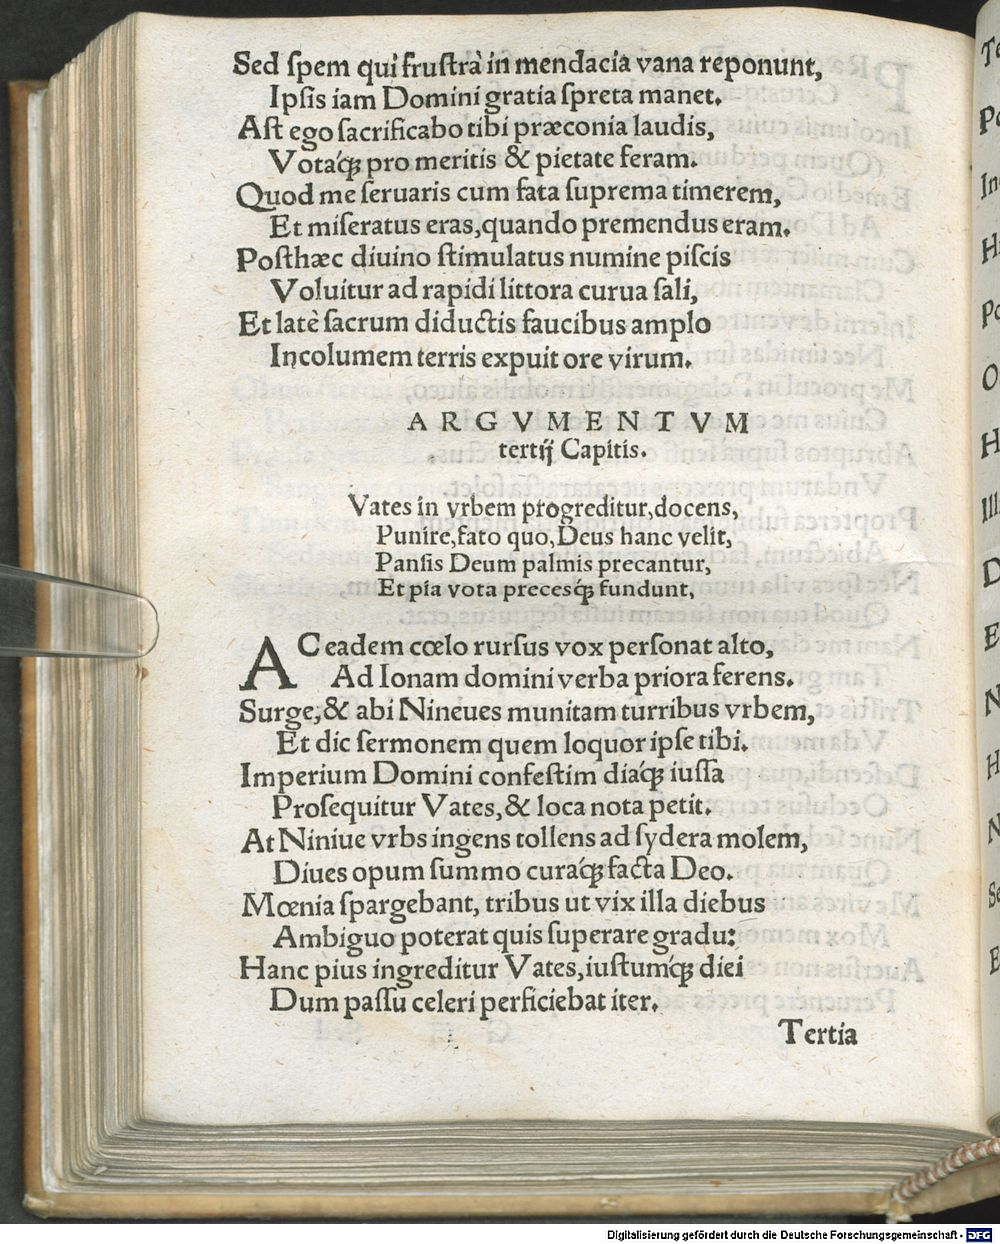 Sed ſpem qui fruſtrà in mendacia vana reponunt,
Ipſis iam Domini gratia ſpreta manet.
Aſt ego ſacrificabo tibi præconia laudis,
Votáq́; pro meritis & pietate feram.
Quod me ſeruaris cum fata ſuprema timerem,
Et miſeratus eras, quando premendus eram.
Poſthæc diuino ſtimulatus numine piſcis
Voluitur ad rapidi littora curua ſali,
Et latè ſacrum diductis faucibus amplo
Incolumem terris expuit ore virum.
ARGVMENTVM
tertij Capitis.
Vates in vrbem progreditur, docens,
Punire, fato quo, Deus hanc velit,
Panſis Deum palmis precantur,
Et pia vota preceſq́; fundunt,
AC eadem cœlo rurſus vox perſonat alto,
Ad Ionam domini verba priora ferens.
Surge, & abi Nineues munitam turribus vrbem,
Et dic ſermonem quem loquor ipſe tibi.
Imperium Domini confeſtim diáq́; iuſſa
Proſequitur Vates, & loca nota petit.
At Niniue vrbs ingens tollens ad ſydera molem,
Diues opum ſummo curáq́; facta Deo.
Mœnia ſpargebant, tribus ut vix illa diebus
Ambiguo poterat quis ſuperare gradu:
Hanc pius ingreditur Vates, iuſtumq́; diei
Dum paſſu celeri perficiebat iter.
Tertia
Digitalisierung gefördert durch die Deutsche Forschungsgemeinschaft - DFG